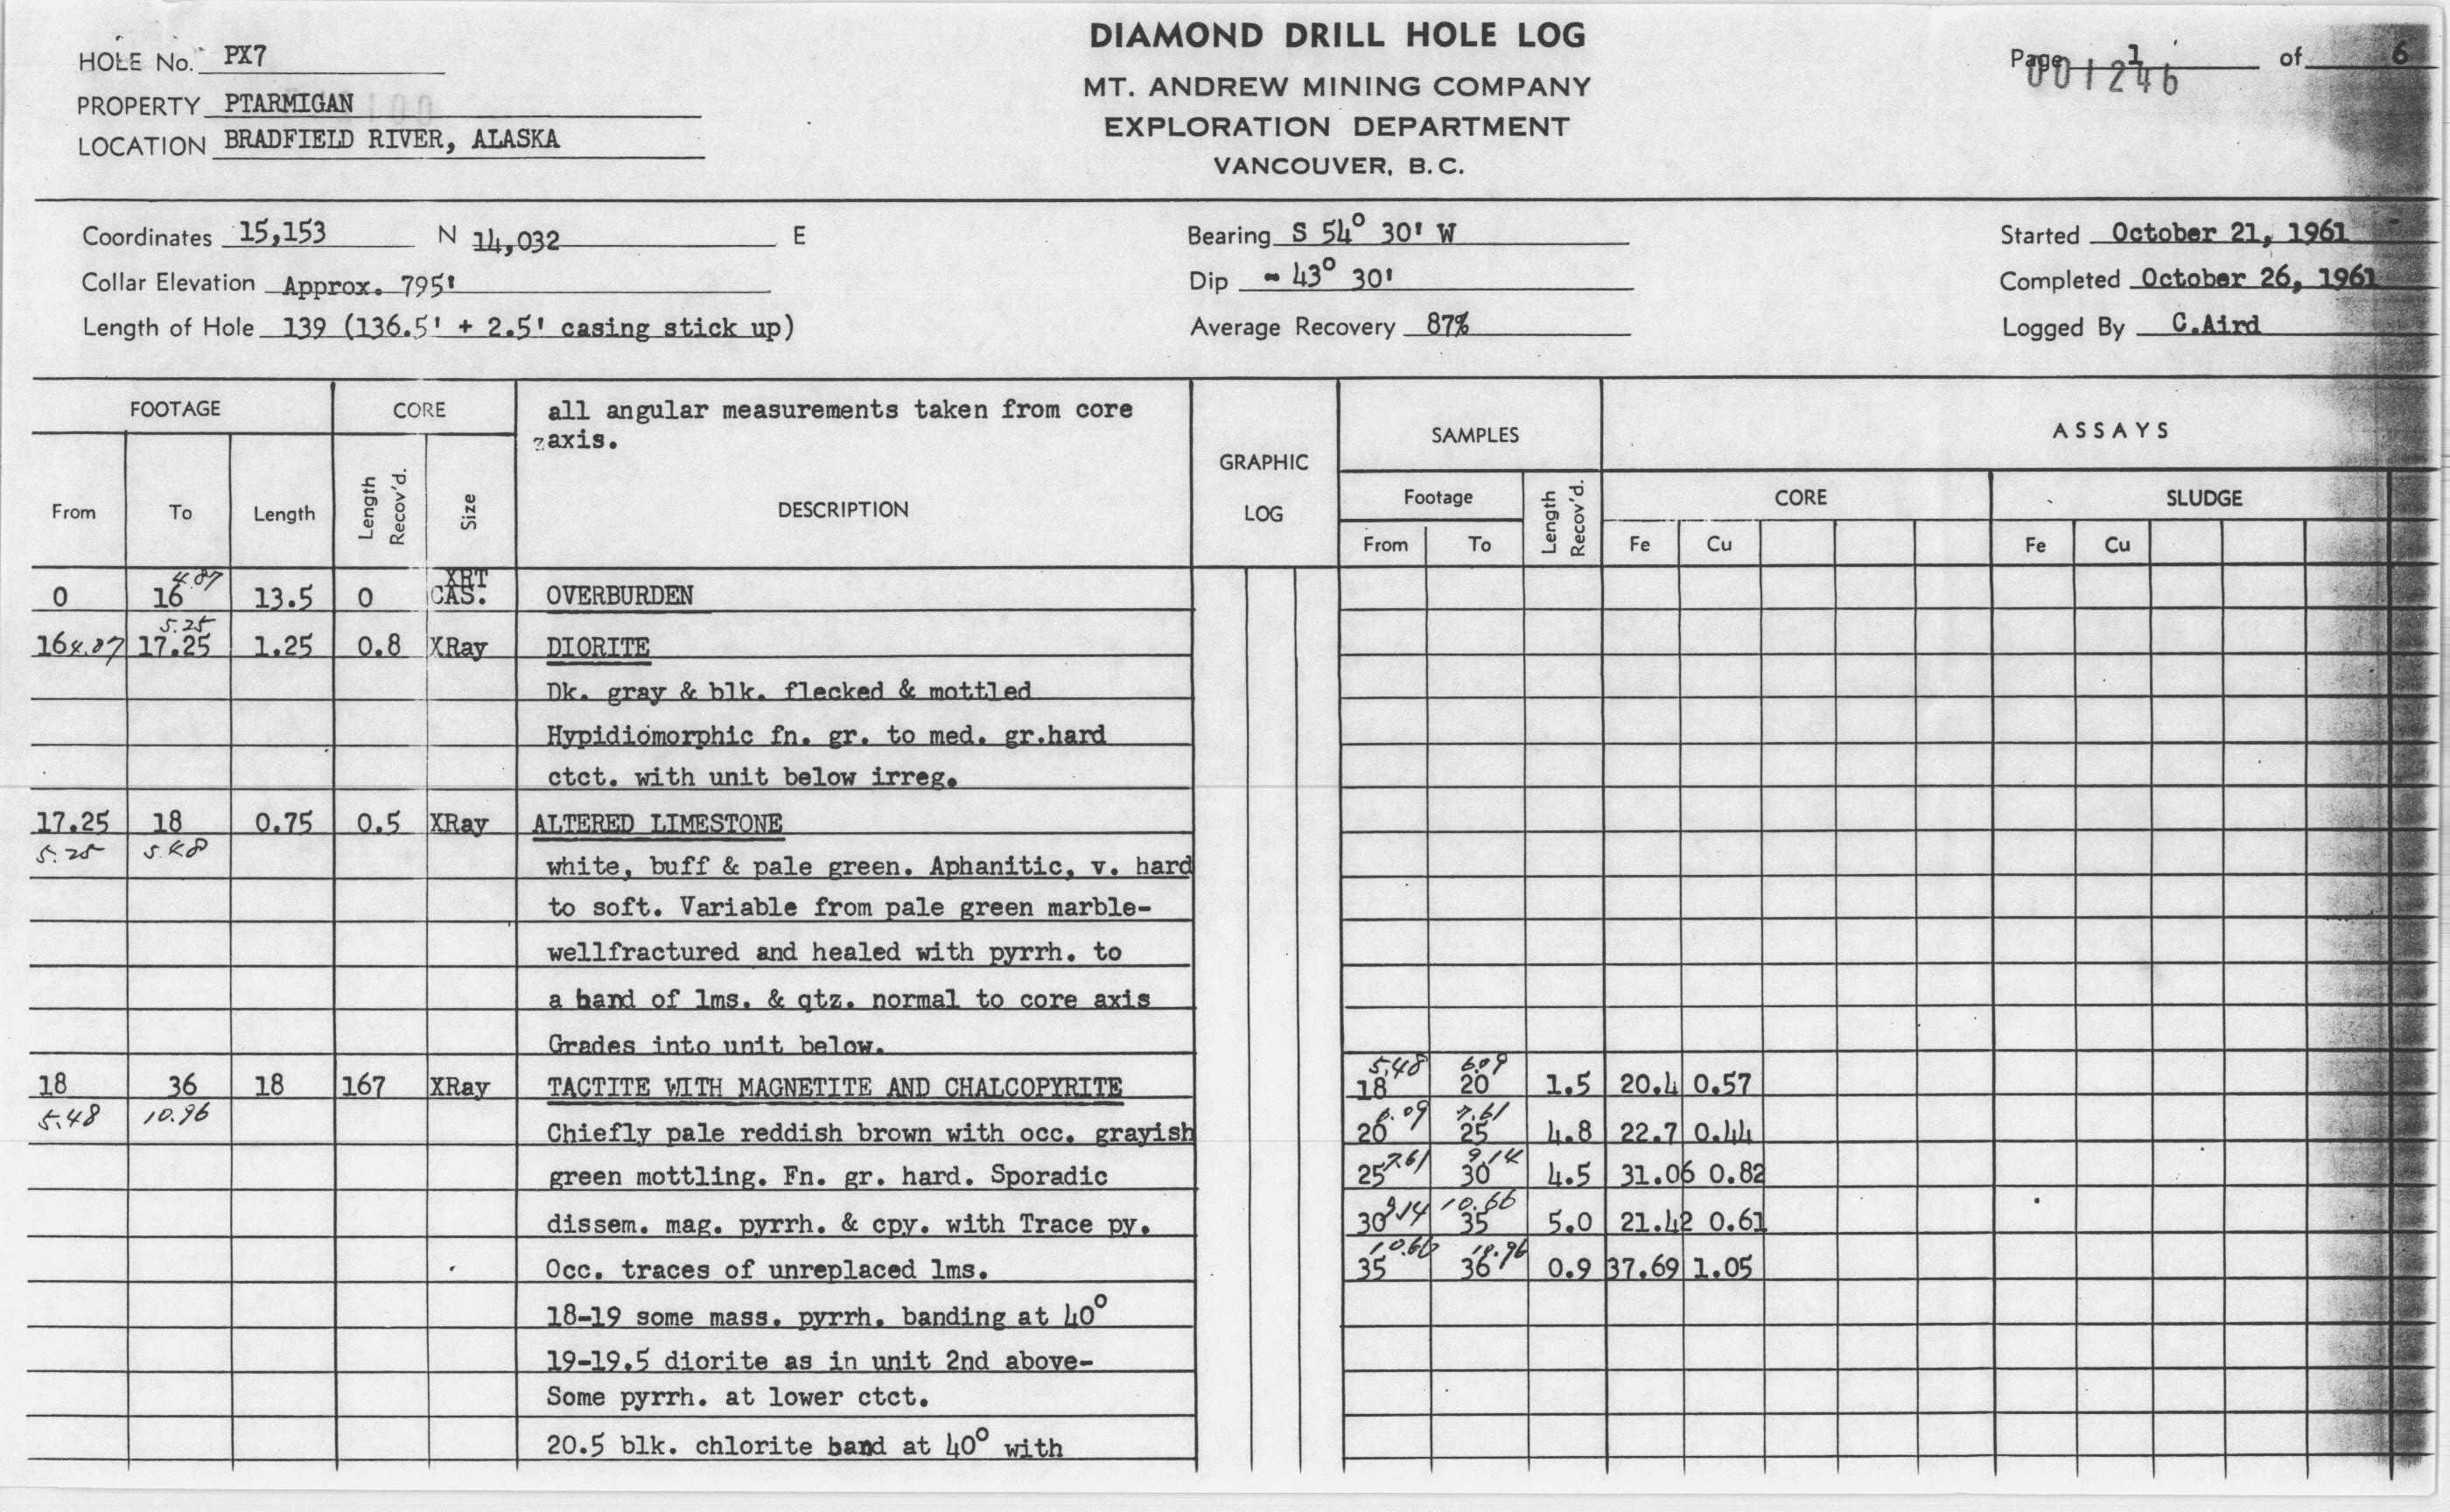 DIAMOND DRILL HOLE LOG
MT. ANDREW MINING COMPANY
EXPLORATION DEPARTMENT
VANCOUVER, B.C.
HOLE No. PX7
PROPERTY PTARMIGAN
LOCATION BRADFIELD RIVER, ALASKA
Page 1 of 6
001246
Coordinates 15,153 N 14,032 E
Collar Elevation Approx. 795'
Length of Hole 139 (136.5' + 2.5' casing stick up)
Bearing S 54° 30' W
Dip - 43° 30'
Average Recovery 87%
Started October 21, 1961
Completed October 26, 1961
Logged By C.Aird
FOOTAGE CORE all angular measurements taken from core
axis.
SAMPLES ASSAYS
GRAPHIC LOG
From To Length Length Recov'd. Size DESCRIPTION
Footage Length Recov'd. CORE SLUDGE
From To Fe Cu Fe Cu
4.87 XRT
0 16 13.5 0 CAS. OVERBURDEN
5.25
16 4.87 17.25 1.25 0.8 XRay DIORITE
Dk. gray & blk. flecked & mottled
Hypidiomorphic fn. gr. to med. gr.hard
ctct. with unit below irreg.
17.25 18 0.75 0.5 XRay ALTERED LIMESTONE
5.25 5.48
white, buff & pale green. Aphanitic, v. hard
to soft. Variable from pale green marble-
wellfractured and healed with pyrrh. to
a band of lms. & qtz. normal to core axis
Grades into unit below.
5.48 6.09
18 36 18 167 XRay TACTITE WITH MAGNETITE AND CHALCOPYRITE 18 20 1.5 20.4 0.57
5.48 10.96
6.09 7.61
Chiefly pale reddish brown with occ. grayish 20 25 4.8 22.7 0.44
7.61 9.14
green mottling. Fn. gr. hard. Sporadic 25 30 4.5 31.06 0.82
9.14 10.66
dissem. mag. pyrrh. & cpy. with Trace py. 30 35 5.0 21.42 0.61
10.66 10.96
Occ. traces of unreplaced lms. 35 36 0.9 37.69 1.05
18-19 some mass. pyrrh. banding at 40°
19-19.5 diorite as in unit 2nd above-
Some pyrrh. at lower ctct.
20.5 blk. chlorite band at 40° with